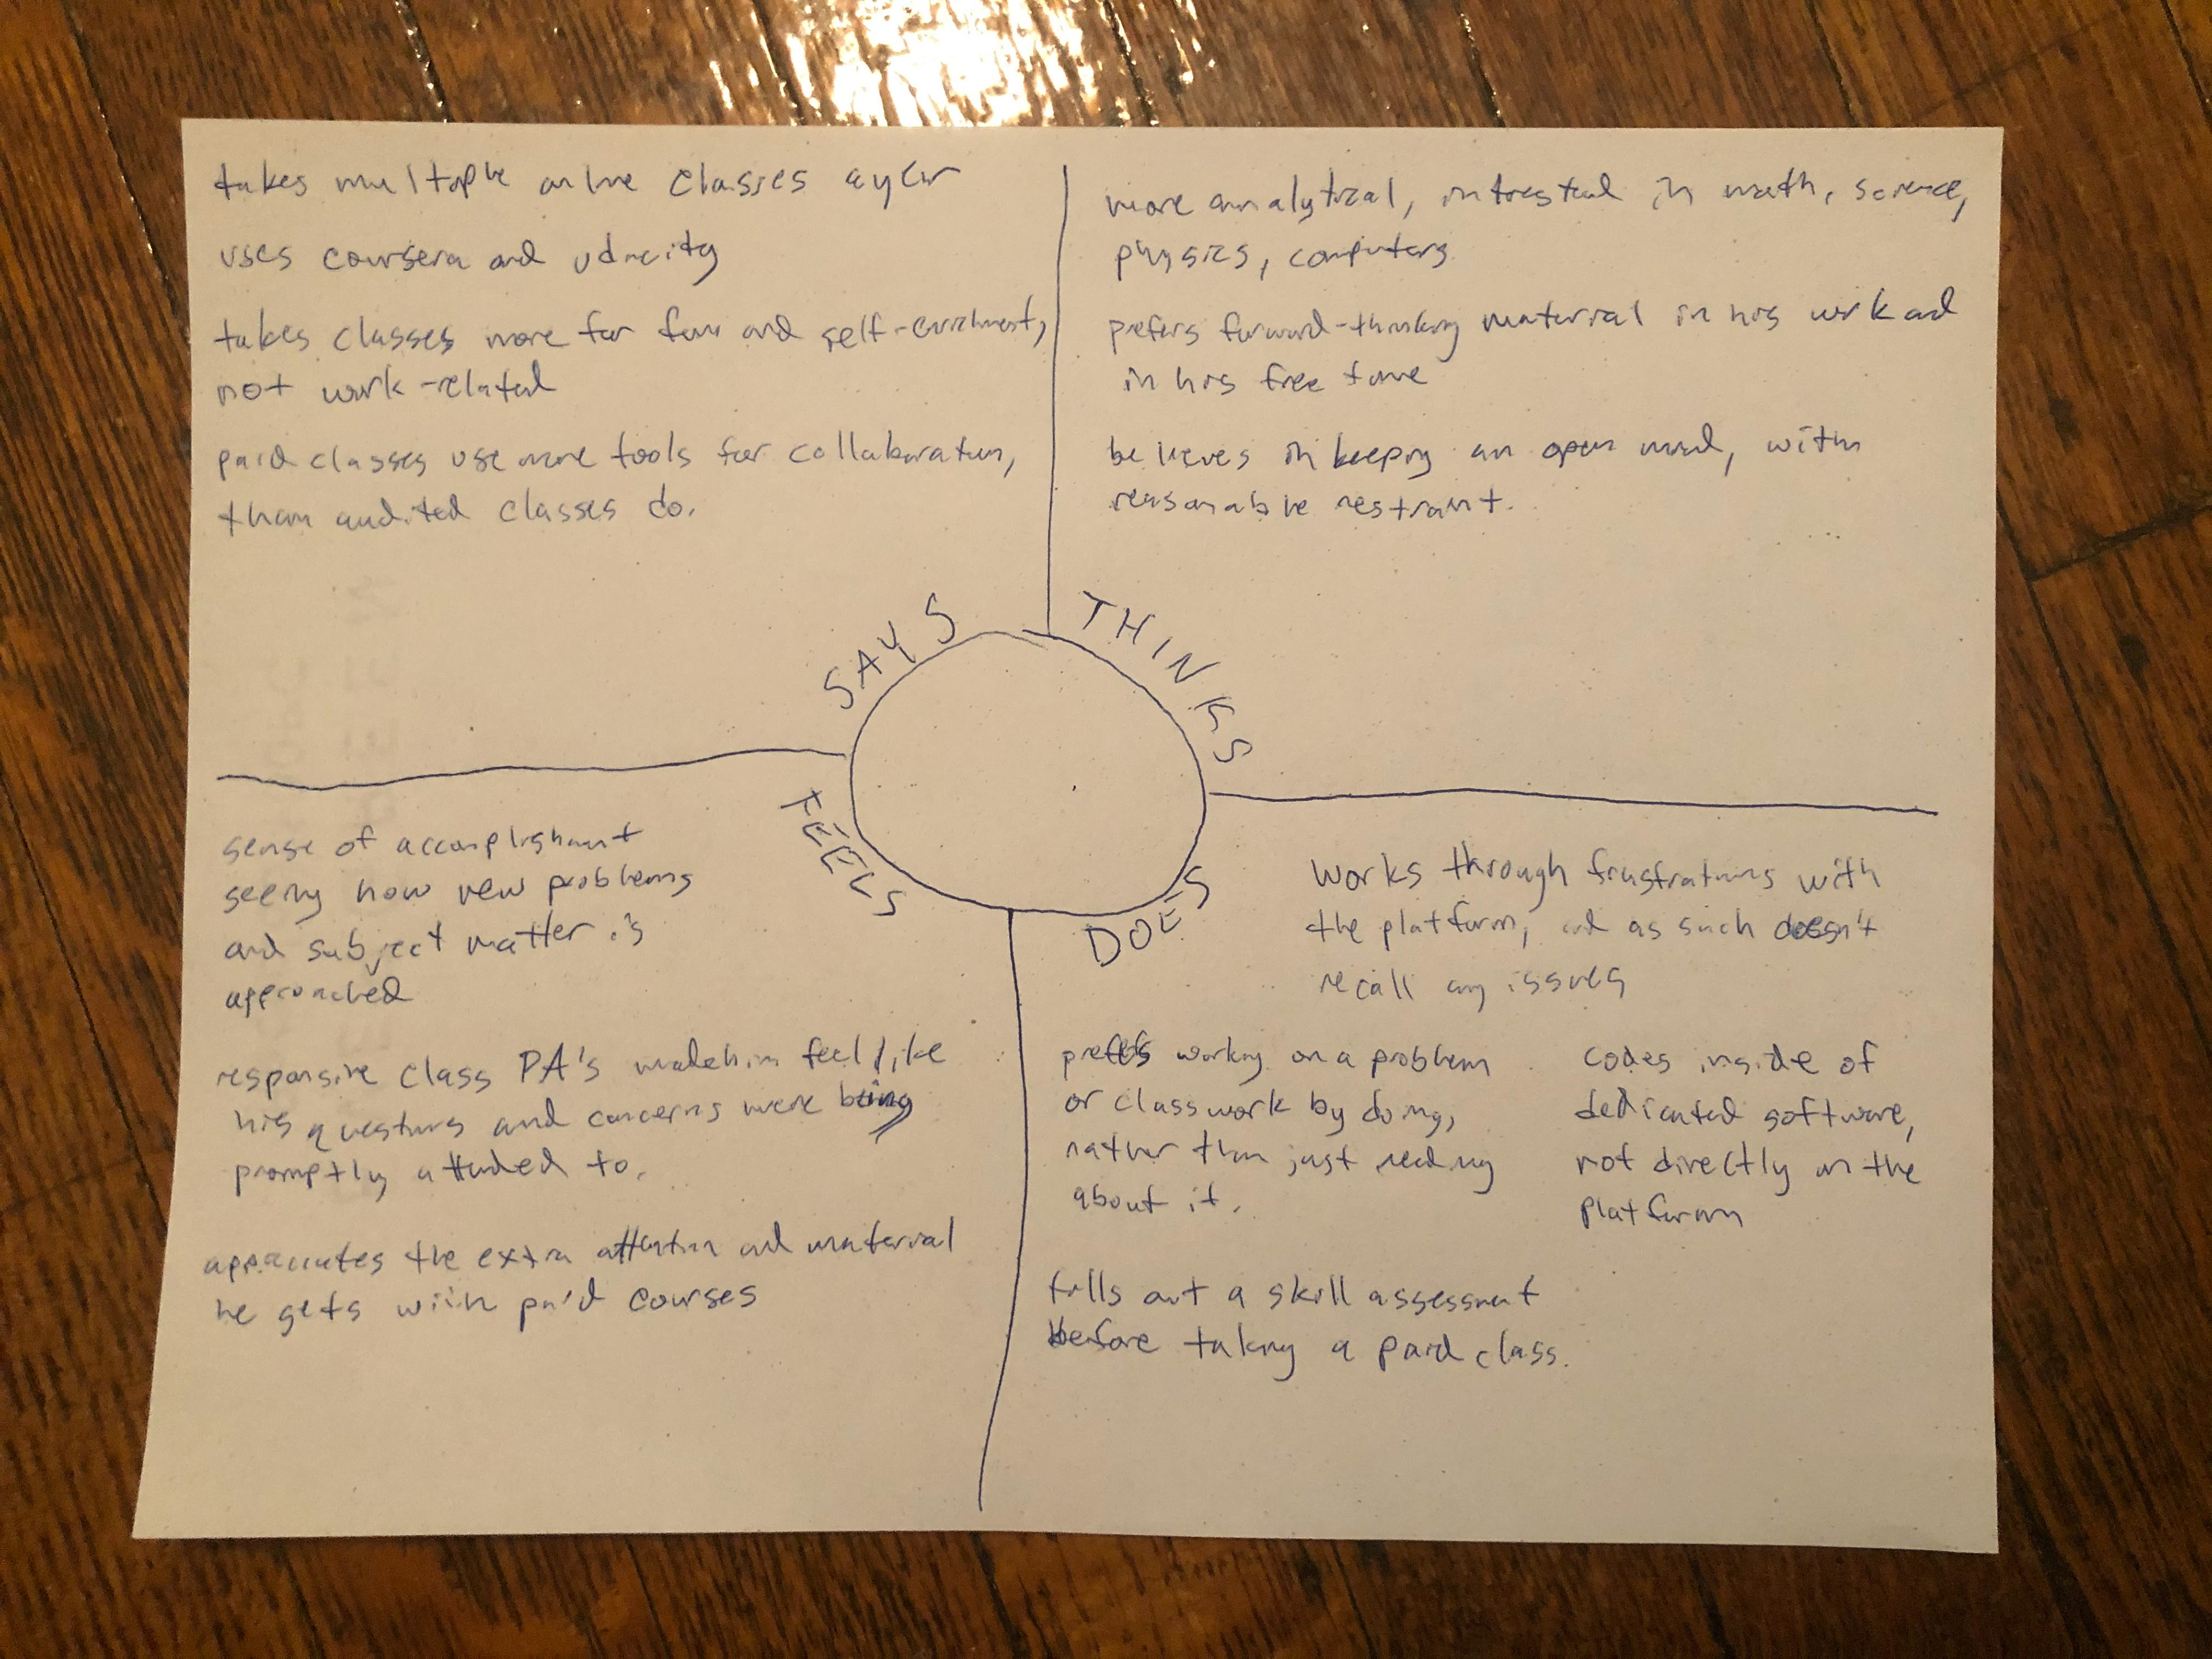 takes multiple online classes a year
uses coursera and udacity
takes classes more for fun and self-enrichment,
not work-related
paid classes use more tools for collaboration,
than audited classes do.
more analytical, intrested in math, science,
physics, computers
prefers forward-thinking material in his work and
in his free time
believes in keeping an open mind, within
reasonable restraint.
SAYS
THINKS
FEELS
DOES
sense of accomplishment
seeing how new problems
and subject matter is
approached
responsive class PA's made him feel like
his questions and concerns were being
promptly attended to.
appreciates the extra attention and material
he gets with paid courses
works through frustrations with
the platform, and as such doesn't
recall any issues
prefers working on a problem
or classwork by doing,
rather than just reading
about it.
codes inside of
dedicated software,
not directly on the
platform
fills out a skill assessment
before taking a paid class.